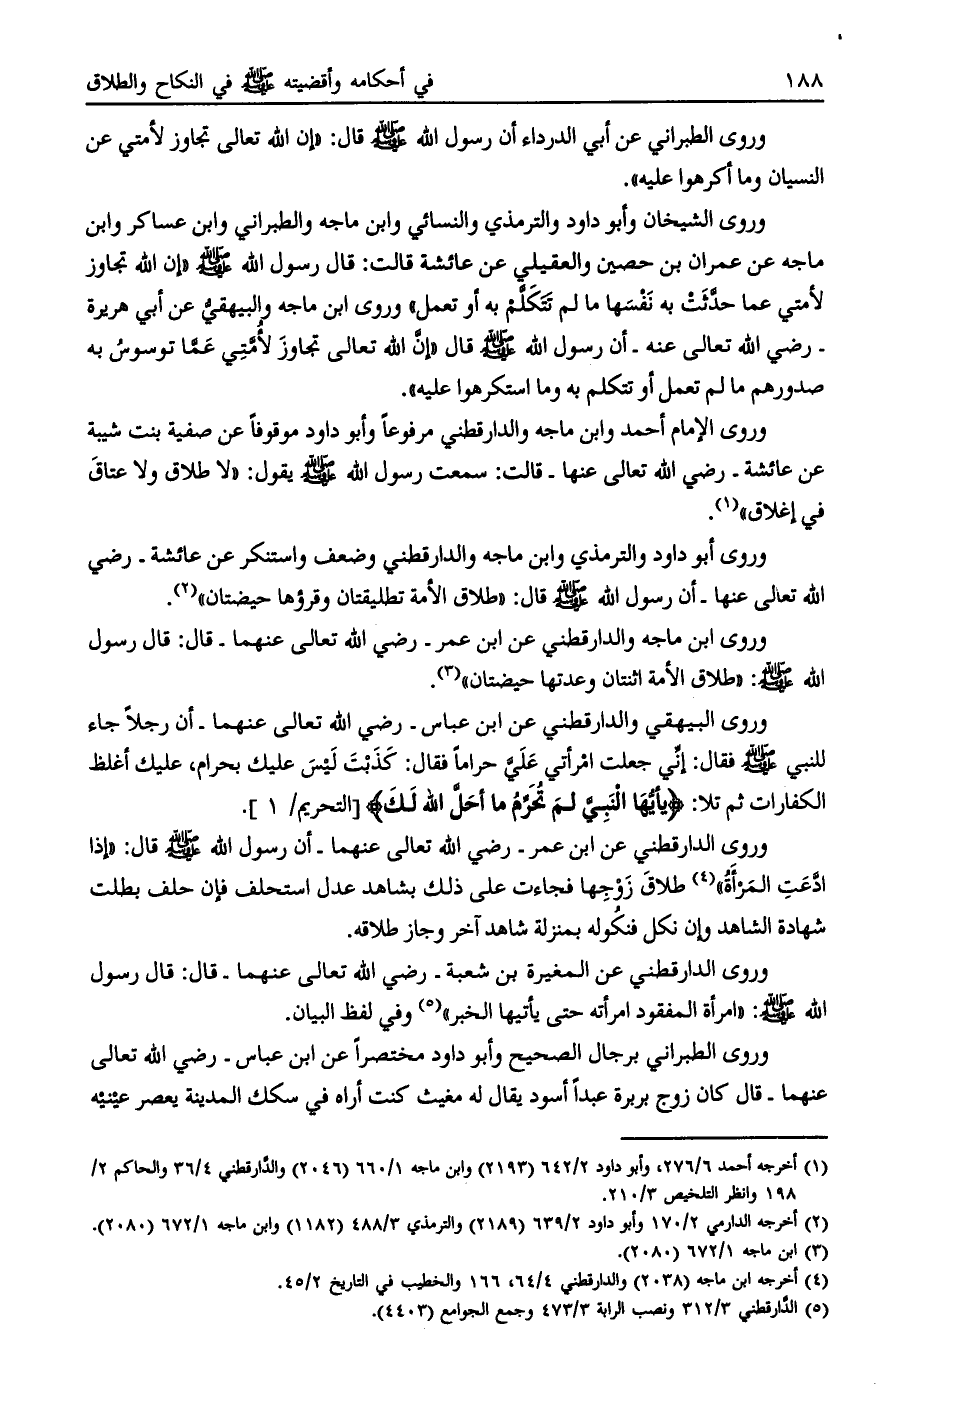 ١٨٨ في أحكامه وأقضيته ﷺ في النكاح والطلاق
وروى الطبراني عن أبي الدرداء أن رسول الله ﷺ قال: «إن الله تعالى تجاوز لأمتي عن
النسيان وما أكرهوا عليه».
وروى الشيخان وأبو داود والترمذي والنسائي وابن ماجه والطبراني وابن عساكر وابن
ماجه عن عمران بن حصين والعقيلي عن عائشة قالت: قال رسول الله ﷺ «إن الله تجاوز
لأمتي عما حدَّثَتْ به نَفْسَها ما لم تَتَكَلَّمْ به أو تعمل» وروى ابن ماجه والبيهقيُّ عن أبي هريرة
ـ رضي الله تعالى عنه ـ أن رسول الله ﷺ قال «إنَّ الله تعالى تجاوزَ لأُمَّتِي عَمَّا توسوسُ به
صدورهم ما لم تعمل أو تتكلم به وما استكرهوا عليه».
وروى الإمام أحمد وابن ماجه والدارقطني مرفوعاً وأبو داود موقوفاً عن صفية بنت شيبة
عن عائشة ـ رضي الله تعالى عنها ـ قالت: سمعت رسول الله ﷺ يقول: «لا طلاق ولا عتاقَ
في إغلاق»(١).
وروى أبو داود والترمذي وابن ماجه والدارقطني وضعف واستنكر عن عائشة ـ رضي
الله تعالى عنها ـ أن رسول الله ﷺ قال: «طلاق الأمة تطليقتان وقرؤها حيضتان»(٢).
وروى ابن ماجه والدارقطني عن ابن عمر ـ رضي الله تعالى عنهما ـ قال: قال رسول
الله ﷺ: «طلاق الأمة اثنتان وعدتها حيضتان»(٣).
وروى البيهقي والدارقطني عن ابن عباس ـ رضي الله تعالى عنهما ـ أن رجلاً جاء
للنبي ﷺ فقال: إنِّي جعلت امْرأتي عَلَيَّ حراماً فقال: كَذَبْتَ لَيْسَ عليك بحرام، عليك أغلظ
الكفارات ثم تلا: ﴿يأيُّهَا الْنَبِيَّ لـمَ تُحَرَّمُ ما أحَلَّ الله لَـكَ﴾ [التحريم/ ١ ].
وروى الدارقطني عن ابن عمر ـ رضي الله تعالى عنهما ـ أن رسول الله ﷺ قال: «إذا
ادَّعَتِ المَرْأَةُ»(٤) طلاقَ زَوْجِها فجاءت على ذلك بشاهد عدل استحلف فإن حلف بطلت
شهادة الشاهد وإن نكل فنكُوله بمنزلة شاهد آخر وجاز طلاقه.
وروى الدارقطني عن المغيرة بن شعبة ـ رضي الله تعالى عنهما ـ قال: قال رسول
الله ﷺ: «امرأة المفقود امرأته حتى يأتيها الخبر»(٥) وفي لفظ البيان.
وروى الطبراني برجال الصحيح وأبو داود مختصراً عن ابن عباس ـ رضي الله تعالى
عنهما ـ قال كان زوج بربرة عبداً أسود يقال له مغيث كنت أراه في سكك المدينة يعصر عيْنيْه
(١) أخرجه أحمد ٢٧٦/٦، وأبو داود ٦٤٢/٢ (٢١٩٣) وابن ماجه ٦٦٠/١ (٢٠٤٦) والدَّارقطني ٣٦/٤ والحاكم ٢/
١٩٨ وانظر التلخيص ٢١٠/٣.
(٢) أخرجه الدارمي ١٧٠/٢ وأبو داود ٦٣٩/٢ (٢١٨٩) والترمذي ٤٨٨/٣ (١١٨٢) وابن ماجه ٦٧٢/١ (٢٠٨٠).
(٣) ابن ماجه ٦٧٢/١ (٢٠٨٠).
(٤) أخرجه ابن ماجه (٢٠٣٨) والدارقطني ٦٤/٤، ١٦٦ والخطيب في التاريخ ٤٥/٢.
(٥) الدَّارقطني ٣١٢/٣ ونصب الراية ٤٧٣/٣ وجمع الجوامع (٤٤٠٣).